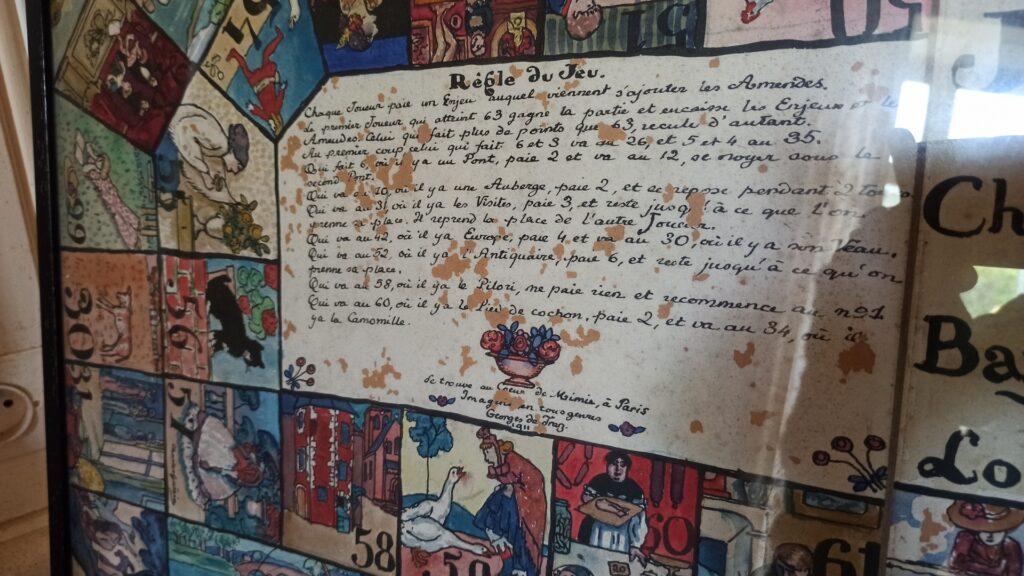 Règle du Jeu.
Chaque Joueur paie un Enjeu auquel viennent s'ajouter les Amendes.
Le premier Joueur qui atteint 63 gagne la partie et encaisse les Enjeux et les
Amendes. Celui qui fait plus de points que 63, recule d'autant.
Au premier coup celui qui fait 6 et 3 va au 26, et 5 et 4 au 35.
Qui fait 6, où il y a un Pont, paie 2 et va au 12, se noyer sous le
second Pont.
Qui va au 10, où il y a une Auberge, paie 2, et se repose pendant 2 tours
Qui va au 31, où il y a les Visites, paie 3, et reste jusqu'à ce que l'on
prenne sa place. Il reprend la place de l'autre Joueur.
Qui va au 42, où il y a Europe, paie 4 et va au 30, où il y a son Veau.
Qui va au 52, où il y a l'Antiquaire, paie 6, et reste jusqu'à ce qu'on
prenne sa place.
Qui va au 58, où il y a le Pilori, ne paie rien et recommence au nº1
Qui va au 60, où il y a le de cochon, paie 2, et va au 34, où il
y a la Camomille.
Se trouve au Coeur de Mimie, à Paris
Imagerie en tous genres
Georges de Traz.
1911
51
50
29
56
30
57
31
58
59
60
61
Ch
Ba
Lo